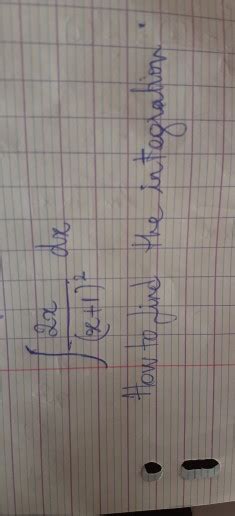 ∫ 2x/(x+1)² dx
How to find the integration.